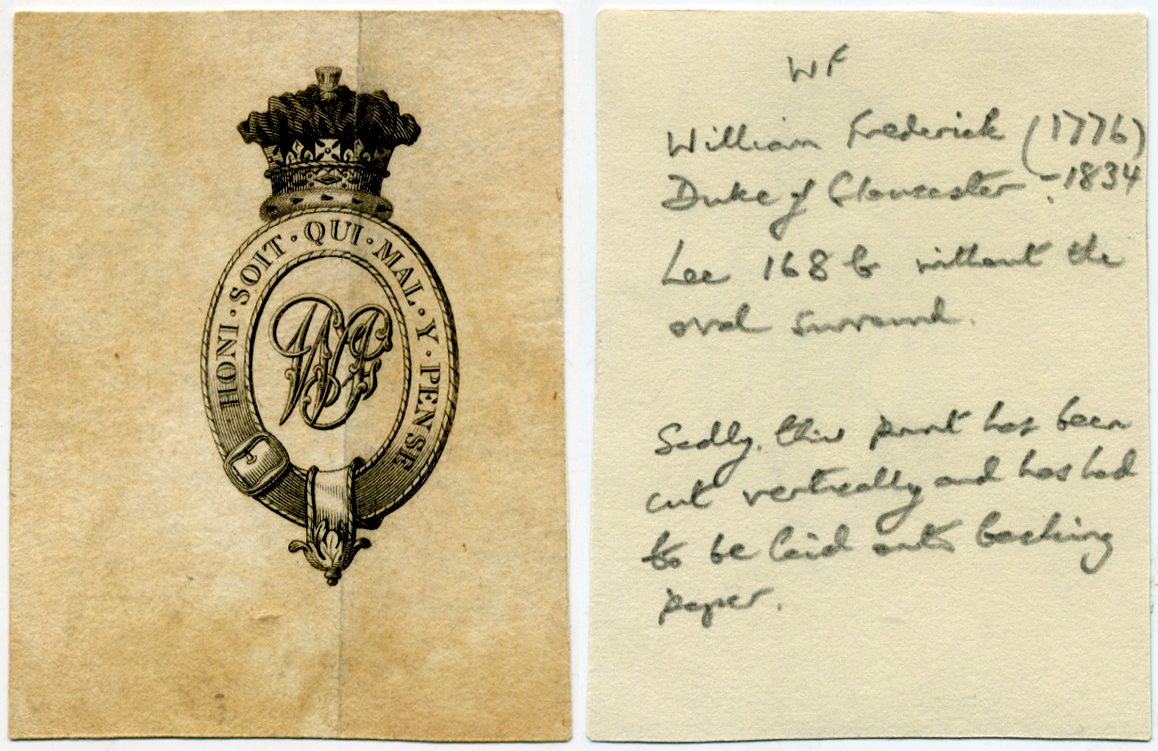 HONI · SOIT · QUI · MAL · Y · PENSE
WF
WF
William Frederick (1776)
Duke of Gloucester. -1834
Lee 168 b without the
oval surround.
Sadly, this print has been
cut vertically and has had
to be laid onto backing
paper.